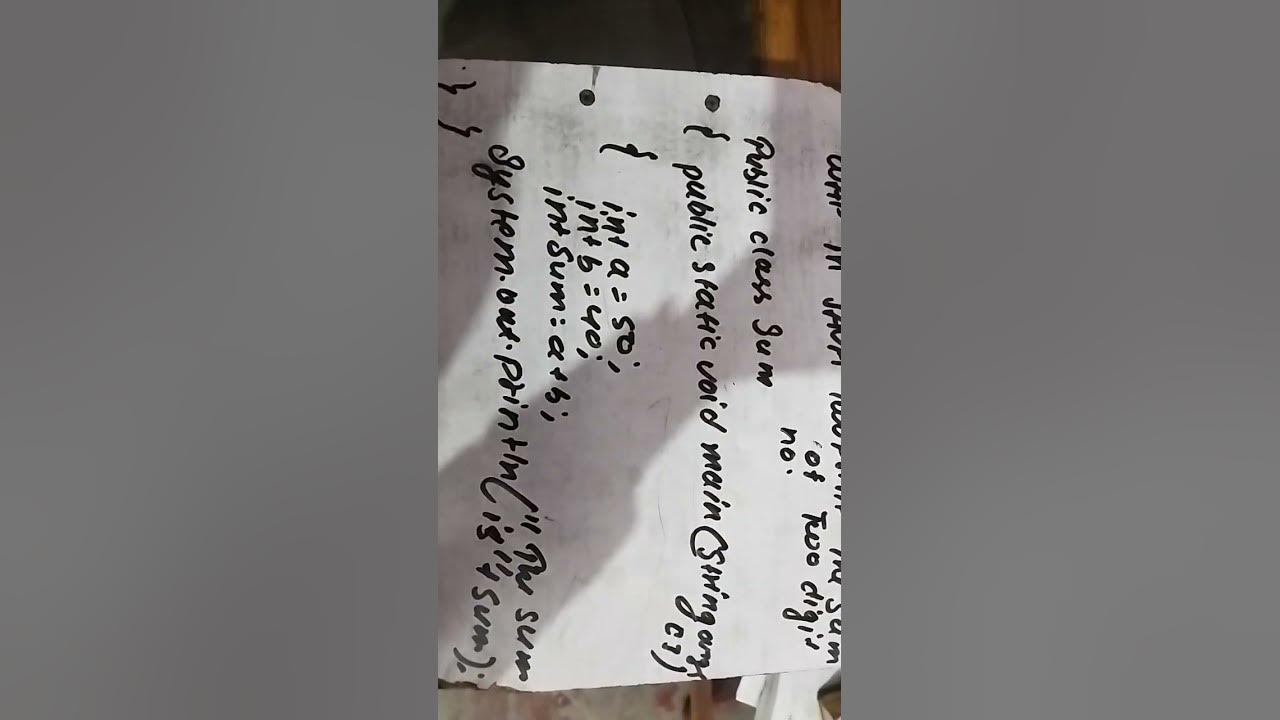 WAP in Java to print the sum
of two digit
no.
Public class Sum
{ public static void main(String args
[])
{
int a = 50;
int b = 40;
int Sum = a + b;
System.out.println("The sum
is" + sum);
} }